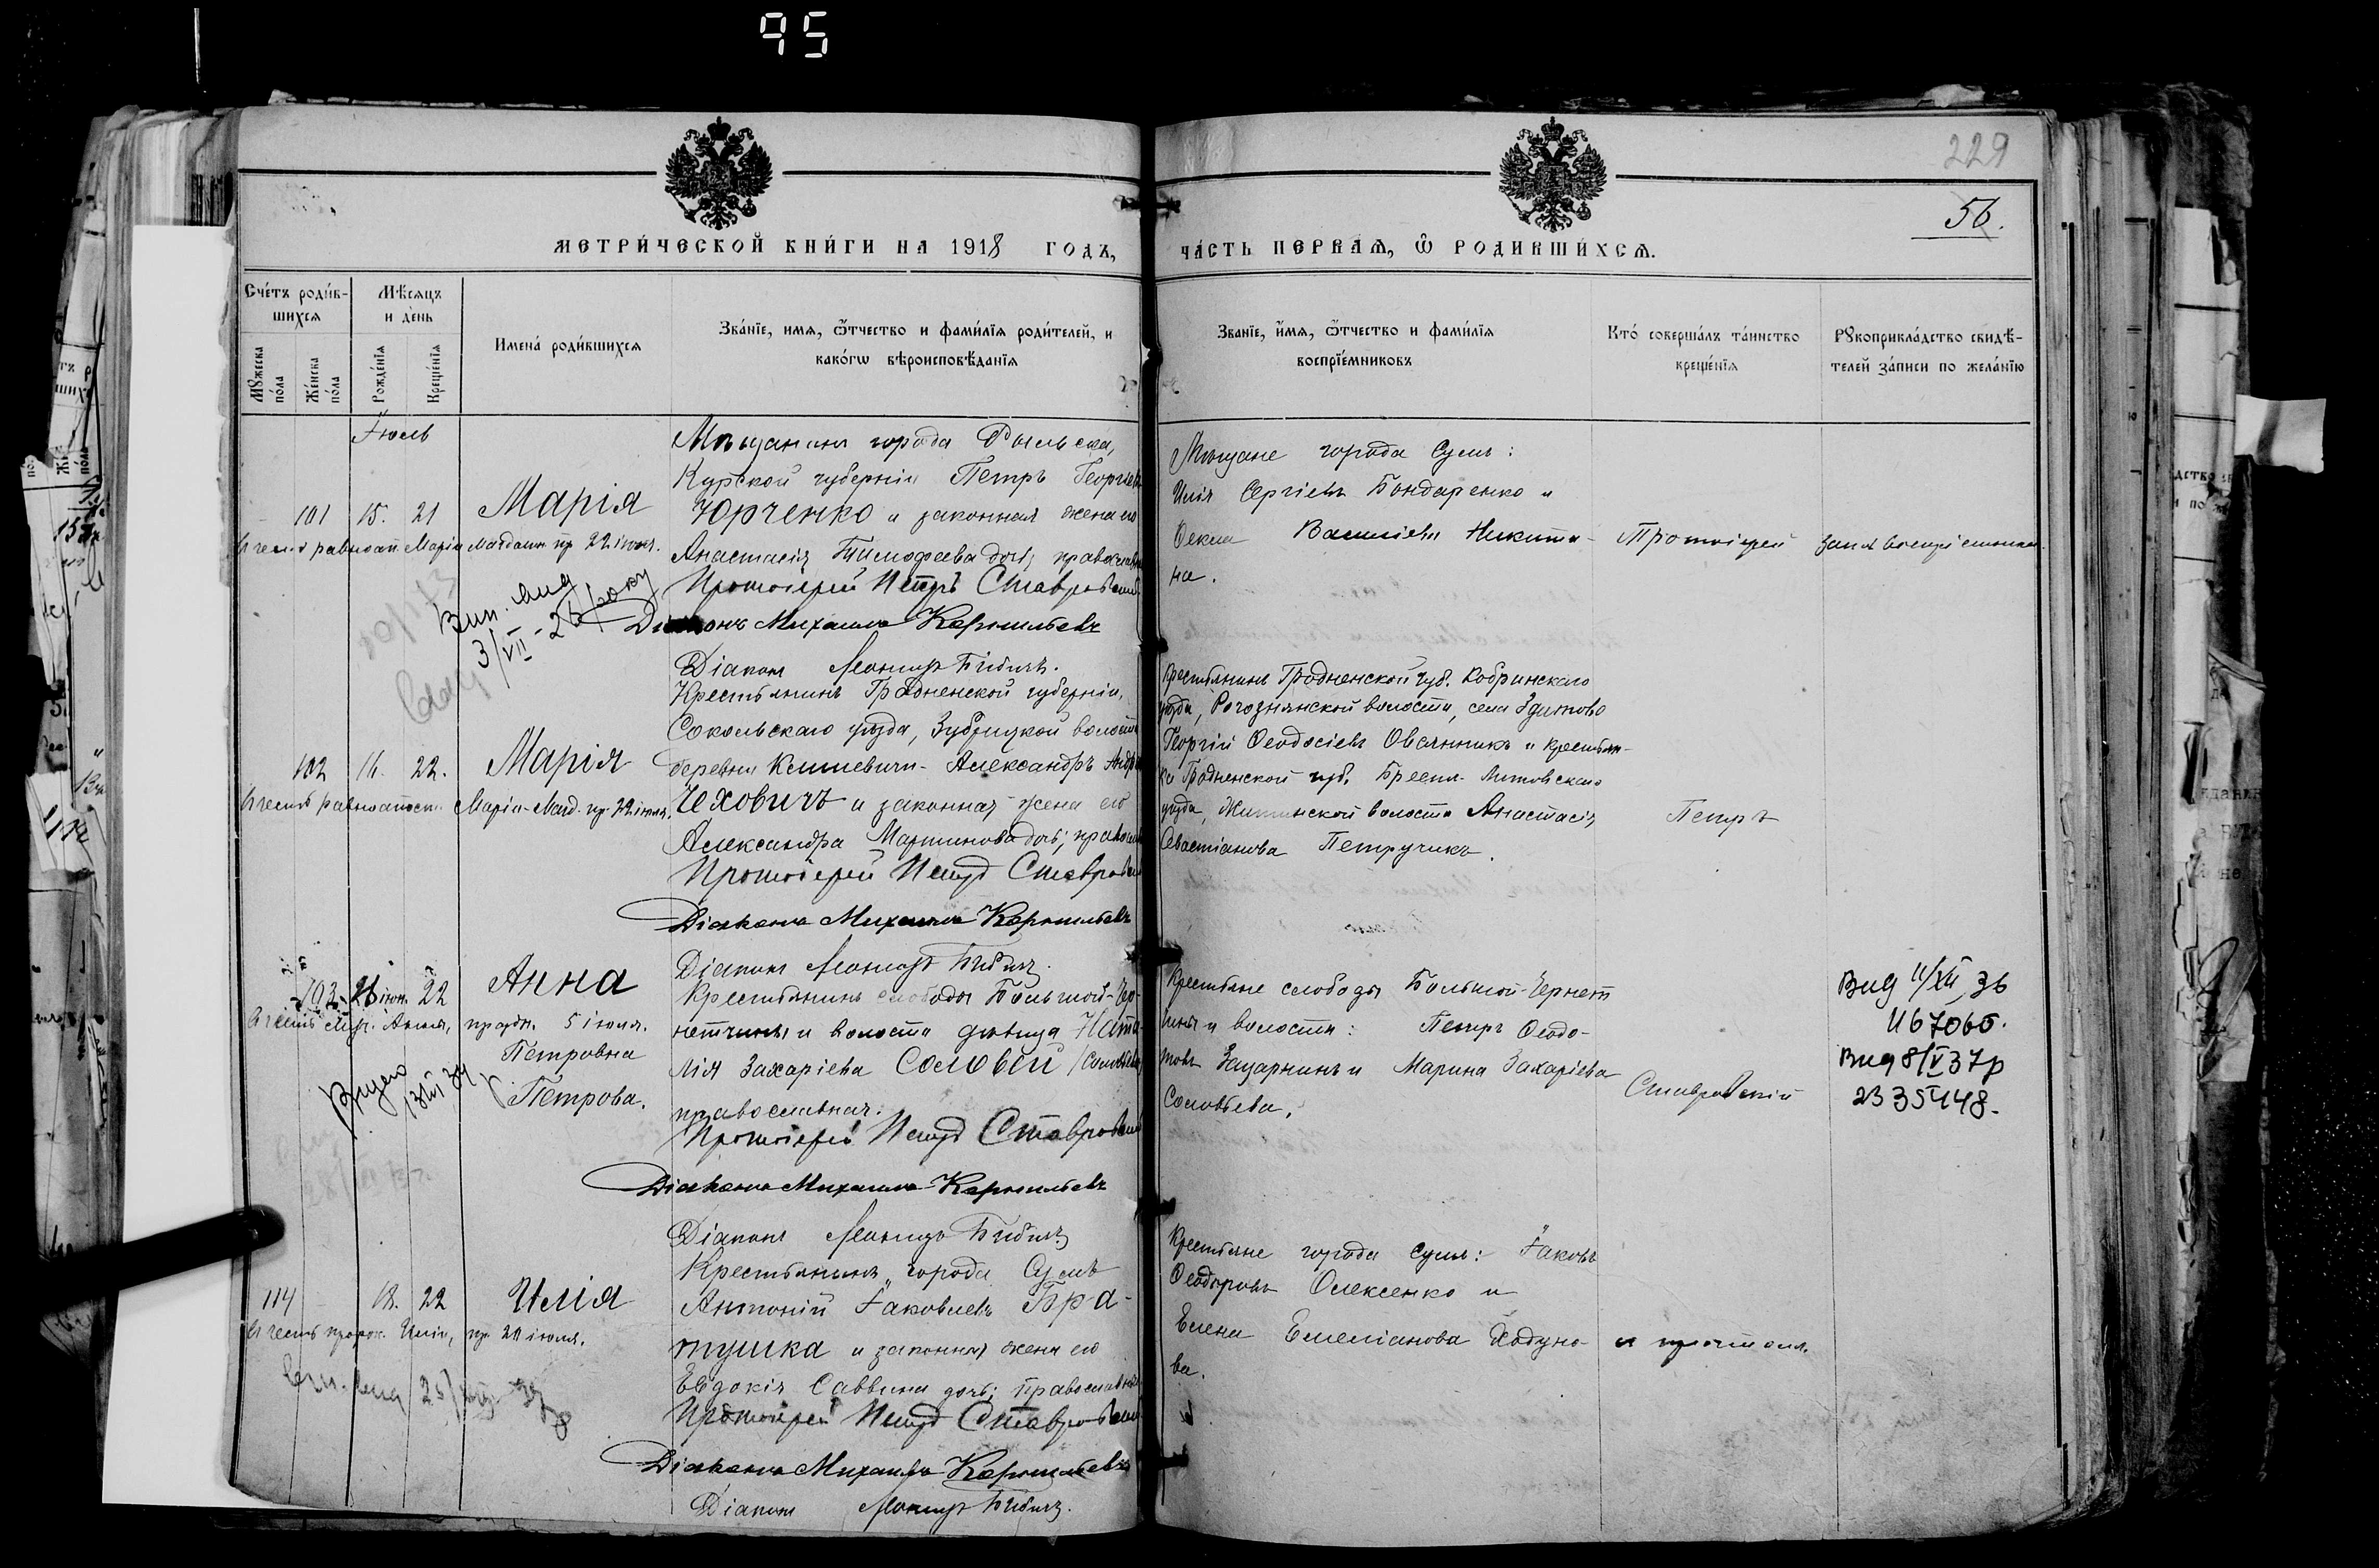 95
229
56.
МЕТРИ́ЧЕСКОЙ КНИ́ГИ НА 1918 ГОДЪ,
ЧА́СТЬ ПЕ́РВАѦ, Ѽ РОДИВШИ́ХСѦ.
Сче́тъ роди́в-
шихсѧ
Мꙋжеска по́ла
Же́нска по́ла
Мѣ́сѧцъ
и де́нь
Рожде́нїѧ
Креще́нїѧ
Имена́ роди́вшихсѧ
Зва́нїе, имѧ, ѻ҆́тчество и фами́лїѧ роди́телей, и
како́гѡ вѣроисповѣ́данїѧ
Зва́нїе, и́мѧ, ѻ҆́тчество и фами́лїѧ
воспрїе́мниковъ
Кто́ соверша́лъ та́инство
креще́нїѧ
Рꙋкоприкла́дство свидѣ́-
телей за́писи по жела́нїю
Іюль
101 15. 21 Марія
Въ честь равноап. Маріи Магдалин. пр. 22 іюля.
Мѣщанинъ города Рыльска,
Курской губерніи Петръ Георгіевъ
Юрченко и законная жена его
Анастасія Тимофеева дочь, православн
Протоіерей Петръ Ставровскій
Діаконъ Михаилъ Корнильевъ
Діаконъ Леонидъ Бибичъ.
Мѣщане города Сумъ:
Илія Сергіевъ Бондаренко и
Ѳекла Васильева Никити-
на.
Протоіерей
Вип. вид
3/VII-26 року
102 16. 22. Марія
Въ честь равноапост. Маріи-Магд. пр. 22 іюля.
Крестьянинъ Гродненской губерніи,
Сокольскаго уѣзда, Зубрицкой волости
деревни Климевичи- Александръ Андре
Чеховичъ и законная жена его
Александра Мартинова дочь; правосл
Протоіерей Петръ Ставровскій
Діаконъ Михаилъ Корнильевъ
Діаконъ Леонидъ Бибичъ.
Крестьянинъ Гродненской губ. Кобринскаго
уѣзда, Рогознянской волости, села Здитово
Георгій Ѳеодосіевъ Овсянникъ и крестьян-
ка Гродненской губ. Брестъ-Литовскаго
уѣзда, волости Анастасія
Севастіанова Петручикъ.
Петръ
103 26 іюн. 22 Анна
Въ честь муч. Анны, праздн. 5 іюля.
Петровна
Петрова.
Крестьянинъ слободы Большой-Чер-
нетчины и волости дѣвица Ната-
лія Захаріева Соловей
православная.
Протоіерей Петръ Ставровскій
Діаконъ Михаилъ Корнильевъ
Діаконъ Леонидъ Бибичъ
Крестьяне слободы Большой-Чернет
чины и волости: Петръ Ѳеодо-
товъ Зацарнинъ и Марина Захаріева
Соловьева.
Ставровскій
Вид 11/XII 36
И67065.
Вид 8/V 37р
2335448.
114 18. 22 Илія
Въ честь прор. Иліи, пр. 20 іюля.
Крестьянинъ города Сумъ
Антоній Іаковлевъ Бра-
тушка и законная жена его
Евдокія Саввина дочь; православн
Протоіерей Петръ Ставровскій
Діаконъ Михаилъ Корнильевъ
Діаконъ Леонидъ Бибичъ.
Крестьяне города Сумъ: Іаковъ
Ѳеодоровъ Олексенко и
Елена Емеліанова Ходуно-
ва.